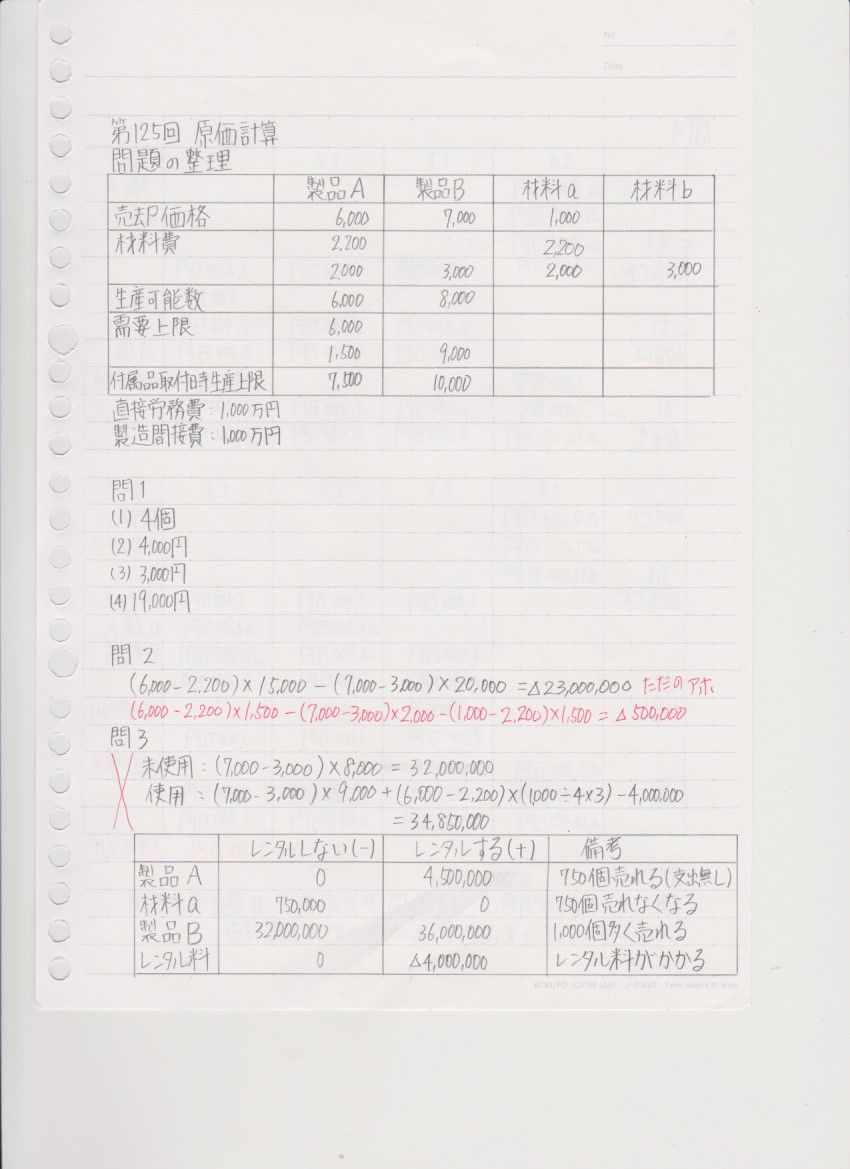 No.
Date
第125回 原価計算
問題の整理
製品A 製品B 材料a 材料b
売却価格 6,000 7,000 1,000
材料費 2,200 2,200
2,000 3,000 2,000 3,000
生産可能数 6,000 8,000
需要上限 6,000
1,500 9,000
付属品取付時生産上限 7,500 10,000
直接労務費:1,000万円
製造間接費:1,000万円
問1
(1) 4個
(2) 4,000円
(3) 3,000円
(4) 19,000円
問2
(6,000-2,200)×15,000-(7,000-3,000)×20,000=△23,000,000 ただのアホ
(6,000-2,200)×1,500-(7,000-3,000)×2,000-(1,000-2,200)×1,500=△500,000
問3
未使用:(7,000-3,000)×8,000=32,000,000
使用:(7,000-3,000)×9,000+(6,000-2,200)×(1,000÷4×3)-4,000,000
=34,850,000
レンタルしない(-) レンタルする(+) 備考
製品A 0 4,500,000 750個売れる(支出無し)
材料a 750,000 0 750個売れなくなる
製品B 32,000,000 36,000,000 1,000個多く売れる
レンタル料 0 △4,000,000 レンタル料がかかる
KOKUYO LOOSE-LEAF ノ-836AT 7 mm ruled × 31 lines